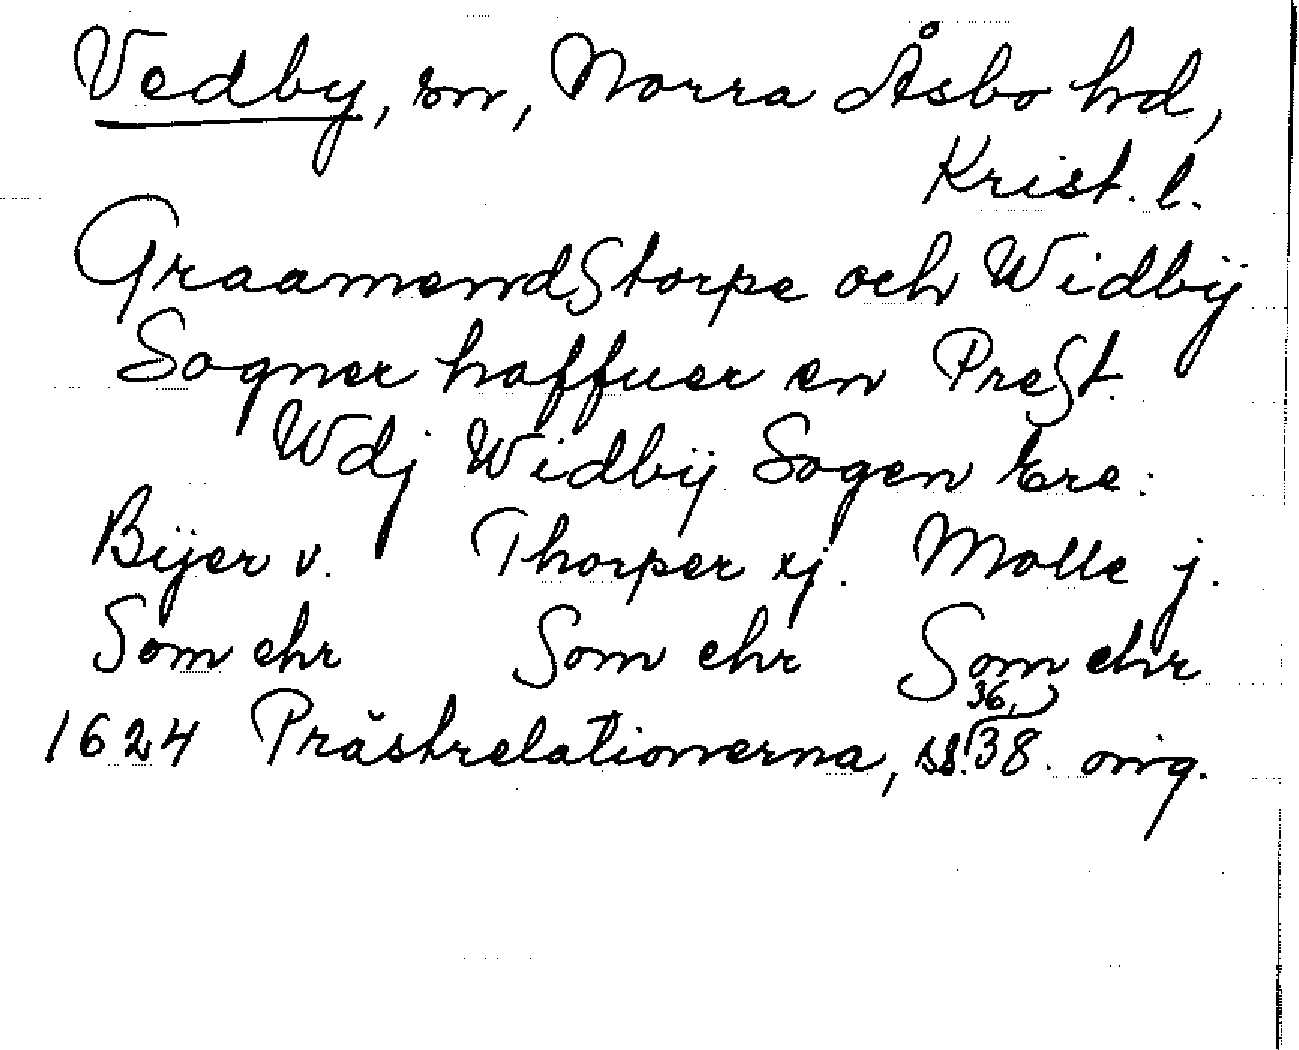 Vedby, sn, Norra Åsbo hd,
Krist. l.
GraamendStorpe och Widbÿ
Sogner haffuer en PreSt.
Wdj Widbÿ Sogen Ere:
Bÿer v. Thorper xj. Molle j.
Som ehr Som ehr Som ehr
1624 Prästrelationerna, ss. 36, 38. orig.